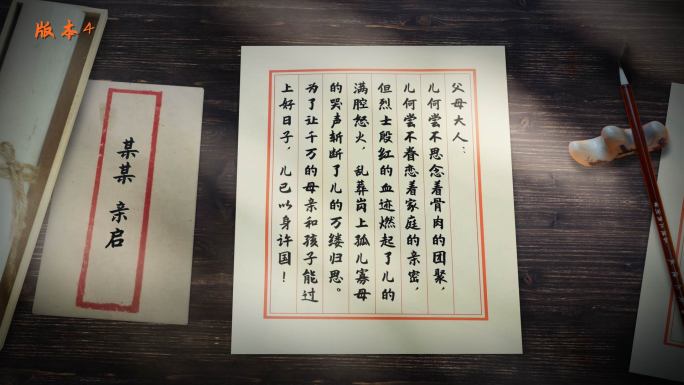 版本4
某某 亲启
父母大人：
儿何尝不思念着骨肉的团聚，
儿何尝不眷恋着家庭的亲密，
但烈士殷红的血迹燃起了儿的
满腔怒火，乱葬岗上孤儿寡母
的哭声斩断了儿的万缕归思。
为了让千万的母亲和孩子能过
上好日子，儿已以身许国！